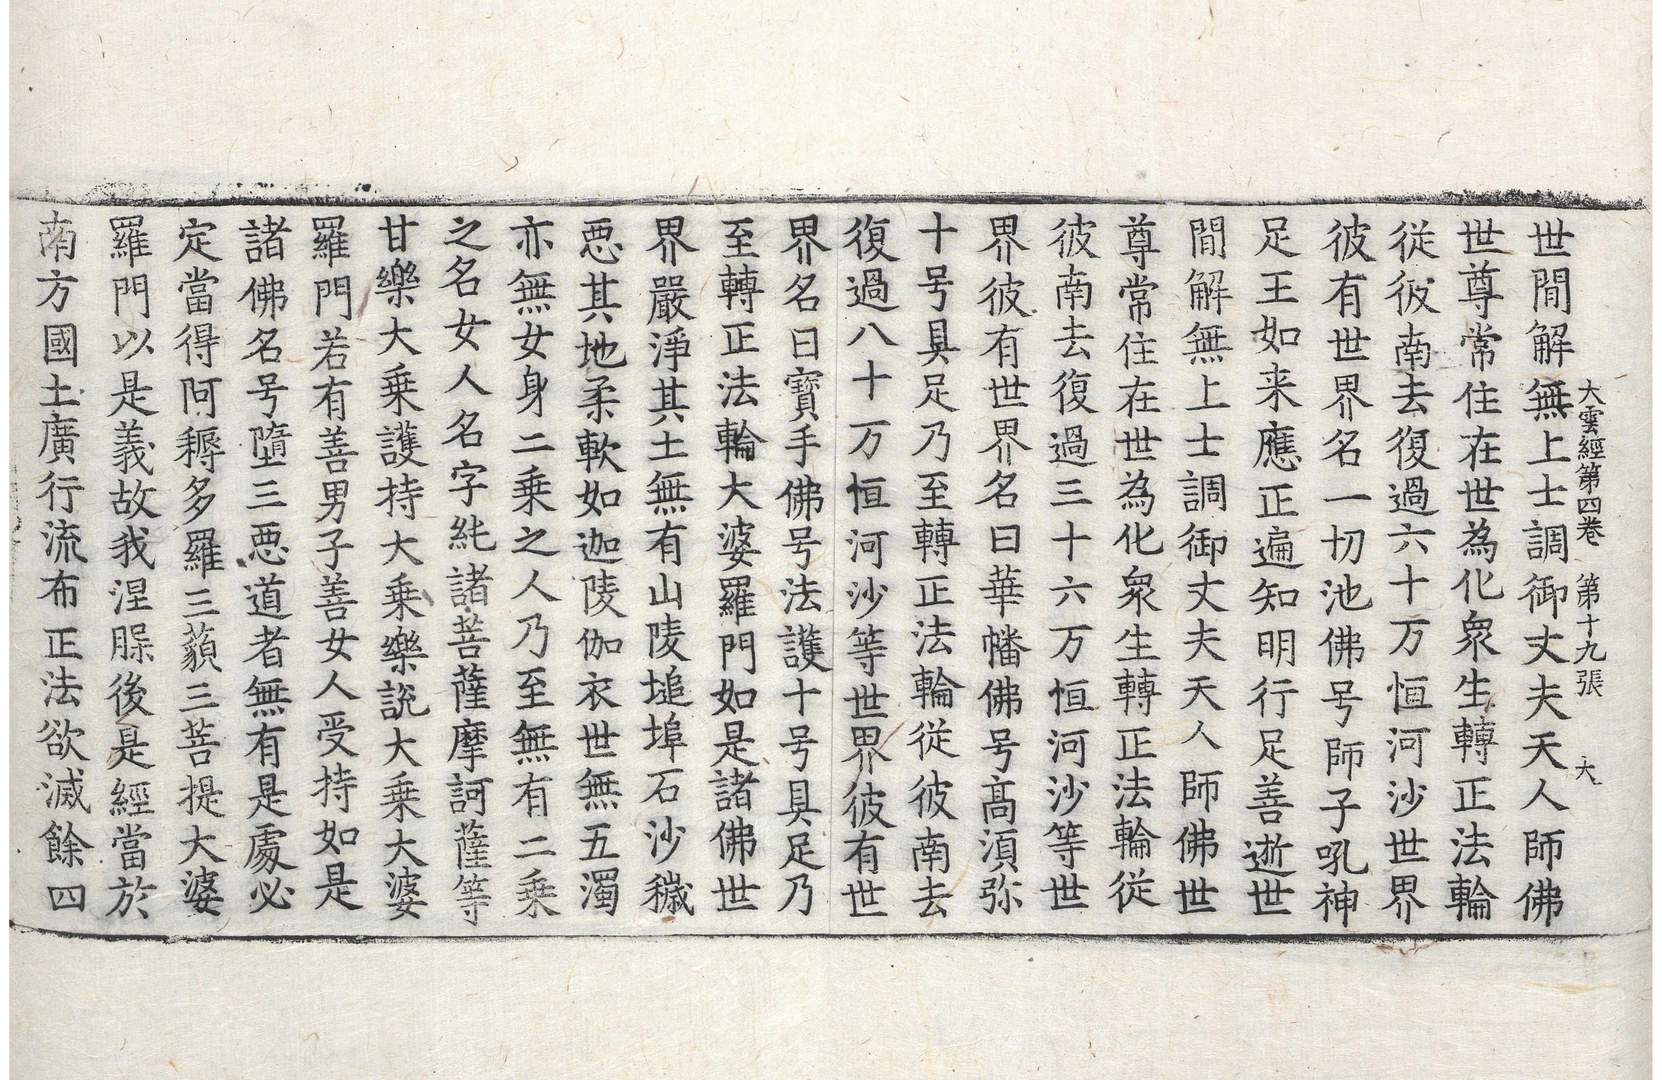 大雲經第四卷 第十九張 大
世閒解無上士調御丈夫天人師佛
世尊常住在世為化衆生轉正法輪
從彼南去復過六十万恒河沙世界
彼有世界名一切池佛号師子吼神
足王如来應正遍知明行足善逝世
閒解無上士調御丈夫天人師佛世
尊常住在世為化衆生轉正法輪從
彼南去復過三十六万恒河沙等世
界彼有世界名曰華幡佛号高湏弥
十号具足乃至轉正法輪從彼南去
復過八十万恒河沙等世界彼有世
界名曰寶手佛号法護十号具足乃
至轉正法輪大婆羅門如是諸佛世
界嚴淨其土無有山陵塠埠石沙穢
惡其地柔軟如迦陵伽衣世無五濁
亦無女身二乘之人乃至無有二乘
之名女人名字純諸菩薩摩訶薩等
甘樂大乘護持大乘樂說大乘大婆
羅門若有善男子善女人受持如是
諸佛名号墮三惡道者無有是處必
定當得阿耨多羅三藐三菩提大婆
羅門以是義故我涅槃後是經當於
南方國土廣行流布正法欲滅餘四